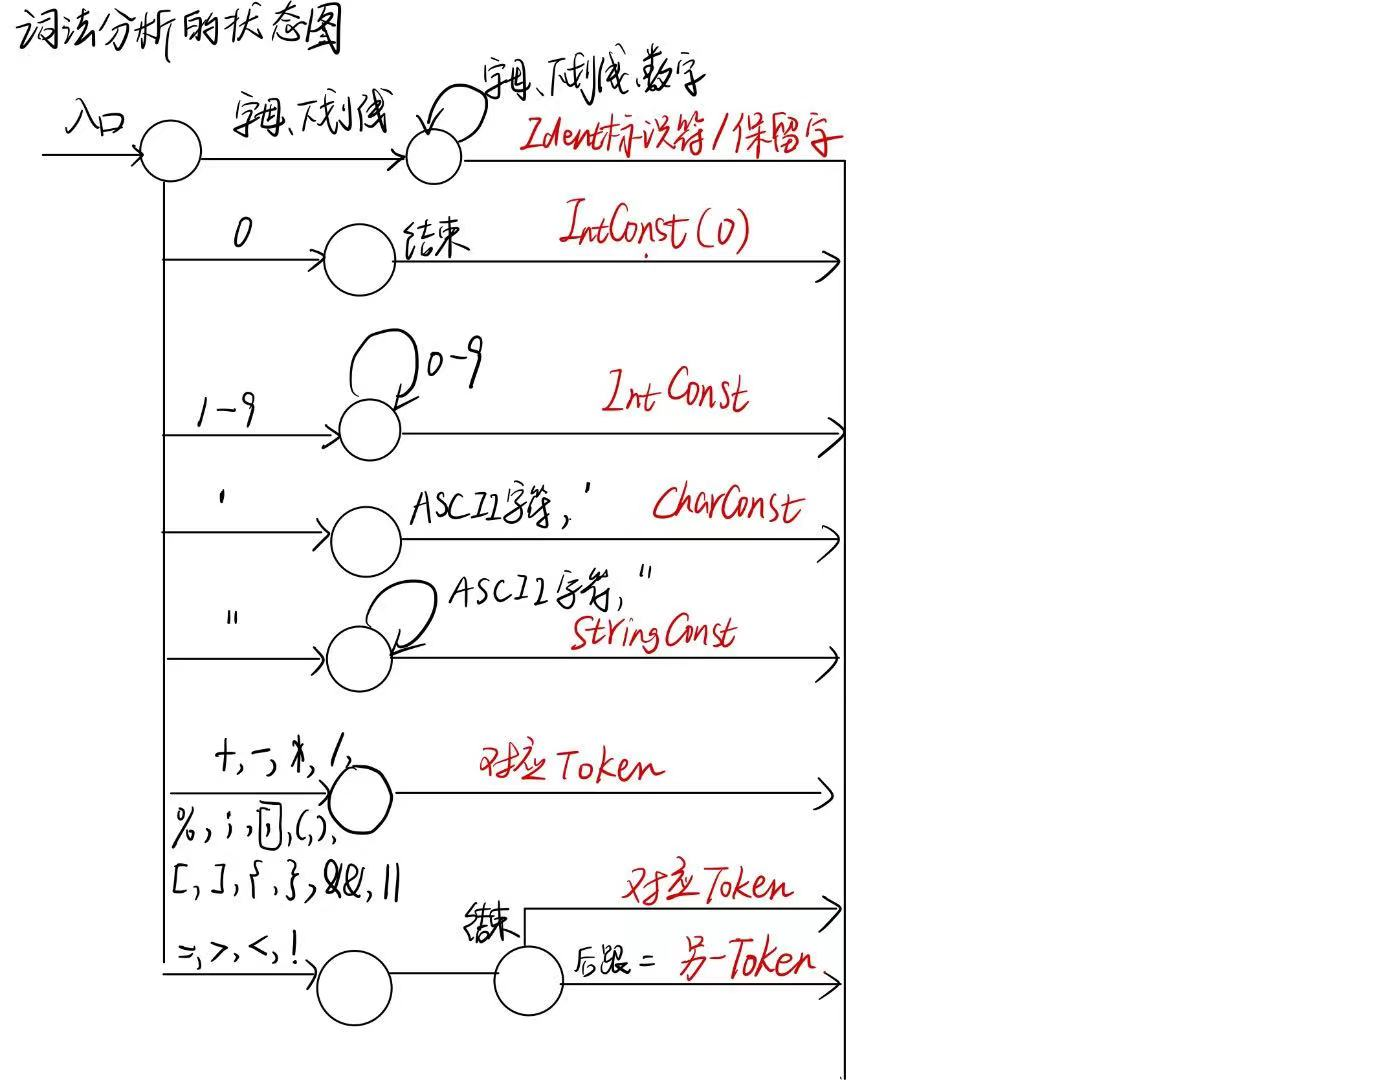 词法分析的状态图
字母、下划线、数字
入口
字母、下划线
Ident标识符/保留字
0
结束
IntConst(0)
0-9
1-9
IntConst
'
ASCII字符,'
CharConst
"
ASCII字符,"
StringConst
+,-,*,/,
对应Token
%,;,[,],(,),
[,],{,},&&,||
对应Token
结束
=,>,<,!
后跟=
另一Token